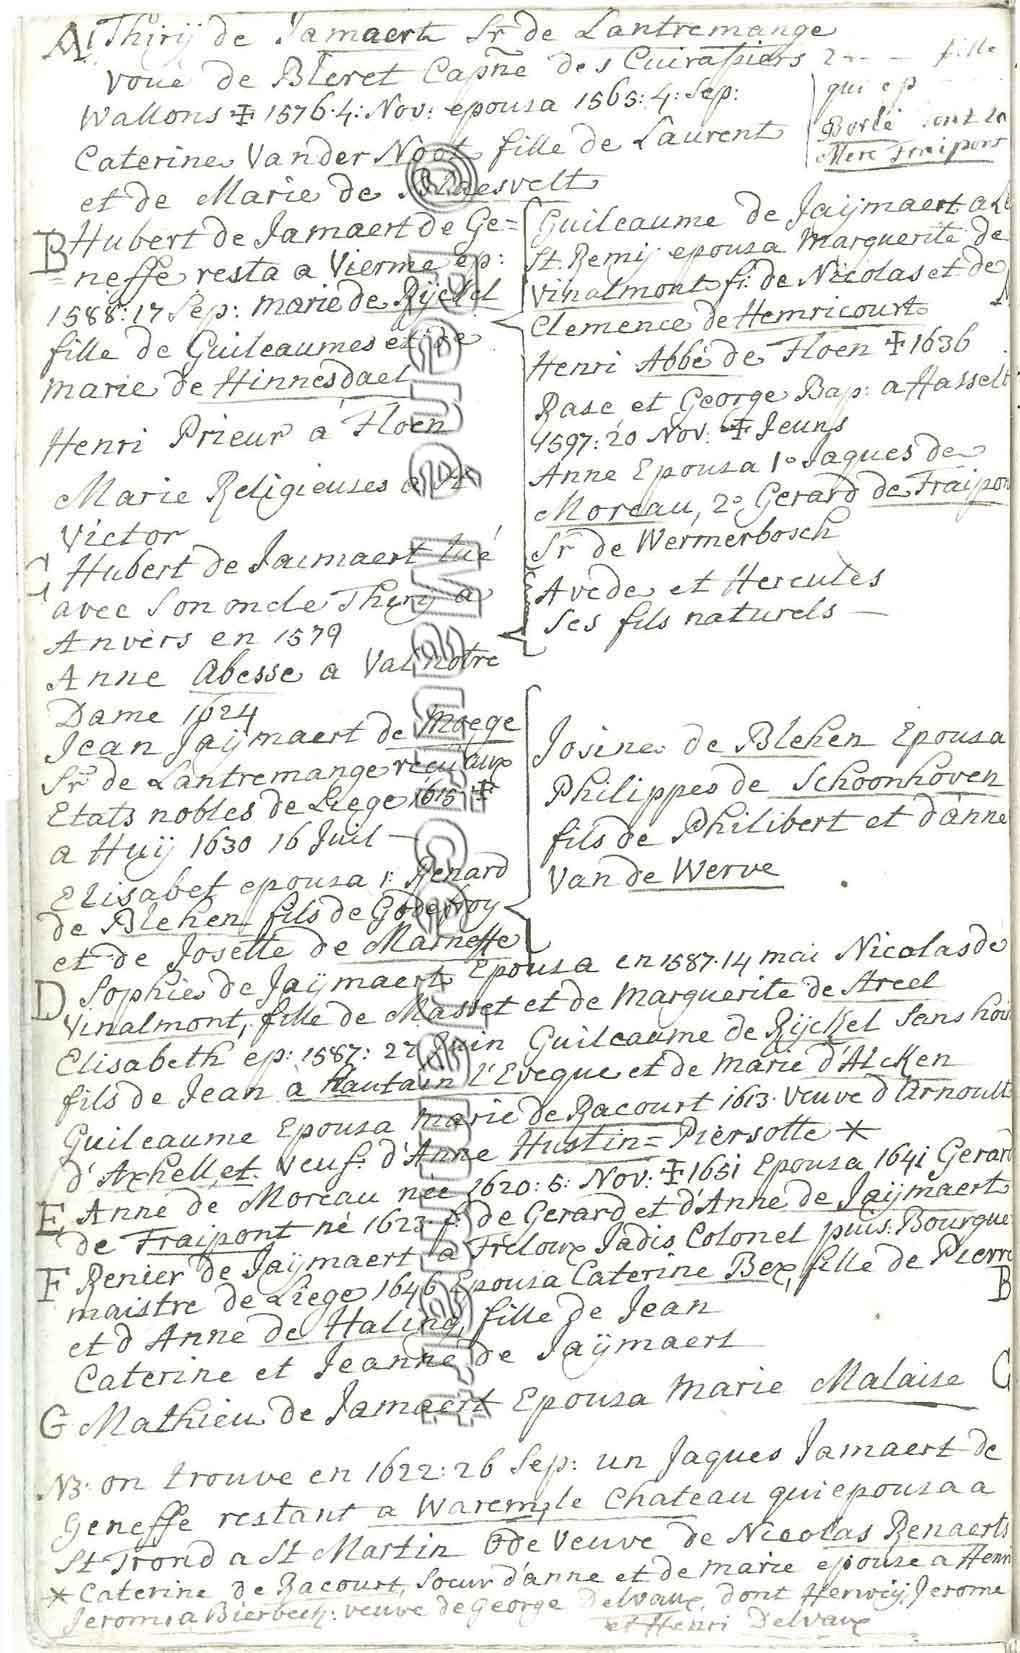 A! Thirij de Jamaert Sr de Lantremange
voue de Bleret Capne des Cuirassiers
Wallons ‡ 1576·4: Nov: epousa 1565: 4: Sep:
Caterine Vander Noot fille de Laurent
et de Marie de Blaesvelt
2 fille
qui ep
Borlé dont la
Mere Fraipont
B Hubert de Jamaert de Ge=
neffe resta a Vierme ep:
1588: 17 Sep: marie de Rÿckel
fille de Guileaumes et de
marie de Hinnesdael
Henri Prieur à Floen
Marie Religieuses a St
Victor
C Hubert de Jaimaert tué
avec son oncle Thirij a
Anvers en 1579
Anne Abesse a Val notre
Dame 1624
Jean Jaÿmaert de Moege
Sr de Lantremange reçu aux
Etats nobles de Liege 1615 ‡
a Huÿ 1630 16 Juil
Elisabet epousa 1: Renard
de Blehen fils de Godefroy
et de Josette de Marneffe
Guileaume de Jaÿmaert a
St Remÿ epousa Marguerite de
Vinalmont fi: de Nicolas et de
Clemence de Hemricourt
Henri Abbé de Floen ‡ 1636
Rase et George Bap: a Hasselt
1597: 20 Nov: ‡ Jeuns
Anne Epousa 1º Jaques de
Moreau, 2º Gerard de Fraipon
Sr de Wermerbosch
Avede et Hercules
ses fils naturels —
Josine de Blehen Epousa
Philippes de Schoonhoven
fils de Philibert et d'anne
Van de Werve
D Sophie de Jaÿmaert Epousa en 1587·14 mai Nicolas de
Vinalmont, fille de Masset et de Marguerite de Areel
Elisabeth ep: 1587: 27 Juin Guileaume de Rÿckel sans hoir
fils de Jean à Hautain l'Eveque et de Marie d'Alcken
Guileaume Epousa marie de Racourt 1613· veuve d'Arnoult
d'Axhellet. veuf: d'Anne Hustin = Piersotte *
E Anne de Moreau née 1620: 5: Nov: ‡ 1651 Epousa 1641 Gerard
de Fraipont né 1623· f: de Gerard et d'Anne de Jaÿmaert
F Renier de Jaÿmaert a Freloux Jadis Colonel puis Bourgue
maistre de Liege 1646 Epousa Caterine Bex, fille de Pierre
et d'Anne de Haling, fille de Jean
B
Caterine et Jeanne de Jaÿmaert
G Mathieu de Jamaert Epousa Marie Malaise
C
NB· on trouve en 1622: 26 Sep: un Jaques Jamaert de
Geneffe restant a Warem, le Chateau qui epousa a
St Trond a St Martin Ode Veuve de Nicolas Renaerts
* Caterine de Racourt, Soeur d'anne et de marie epouse a Henri
Jerome a Bierbeek: veuve de George Delvaux, dont Herwÿ, Jerome
et Henri Delvaux
© René Maurice Jaumaert